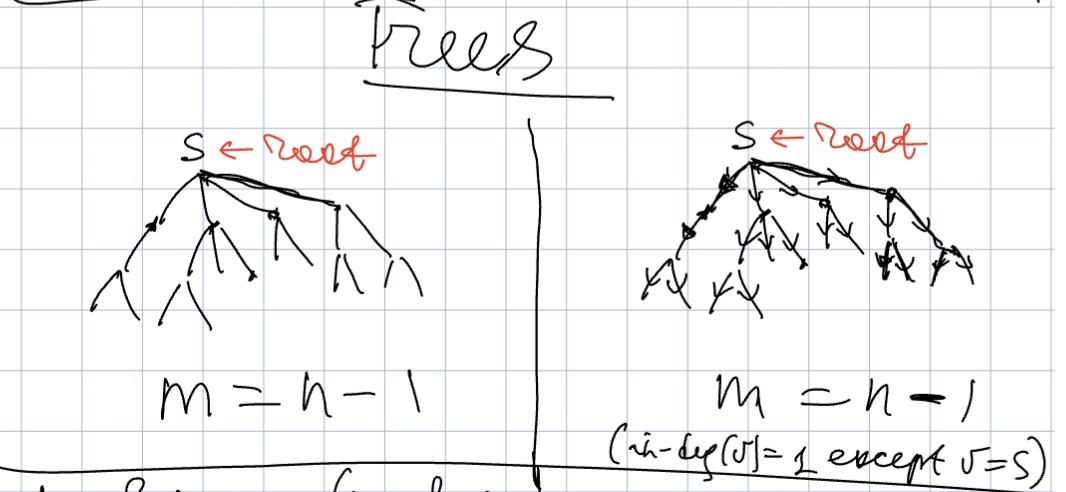 Trees
S ← root
S ← root
m = n - 1
m = n - 1
(in-deg(v) = 1 except v = S)